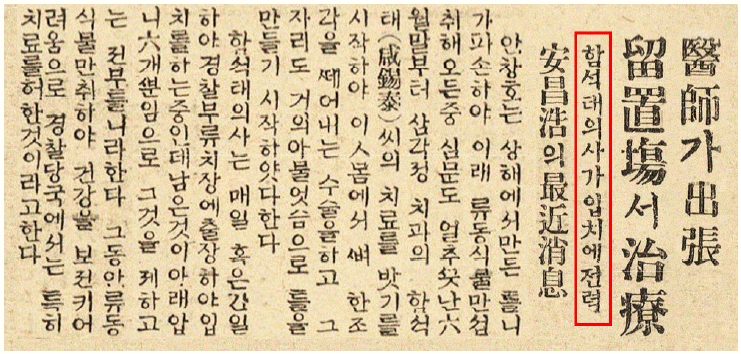 醫師가出張
留置場서治療
함석태의사가입치에전력
安昌浩의最近消息
안창호는 상해에서만든 틀니
가파손하야 이래 류동식물만섭
취해오든중 심문도 얼추끗난六
월말부터 삼각정 치과의 함석
태(咸錫泰)씨의 치료를 밧기를
시작하야 이人몸에서 뼈 한조
각을 떼어내는 수술을하고 그
자리도 거의아물엇슴으로 틀을
만들기 시작하얏다한다
함석태의사는 매일 혹은간일
하야경찰부류치장에출장하야입
치를하는중인데남은것이아래압
니六개뿐임으로 그것을 제하고
는 전부틀니라한다 그동안류동
식물만취하야 건강을 보전키어
려움으로 경찰당국에서는 특히
치료를허한것이라고한다